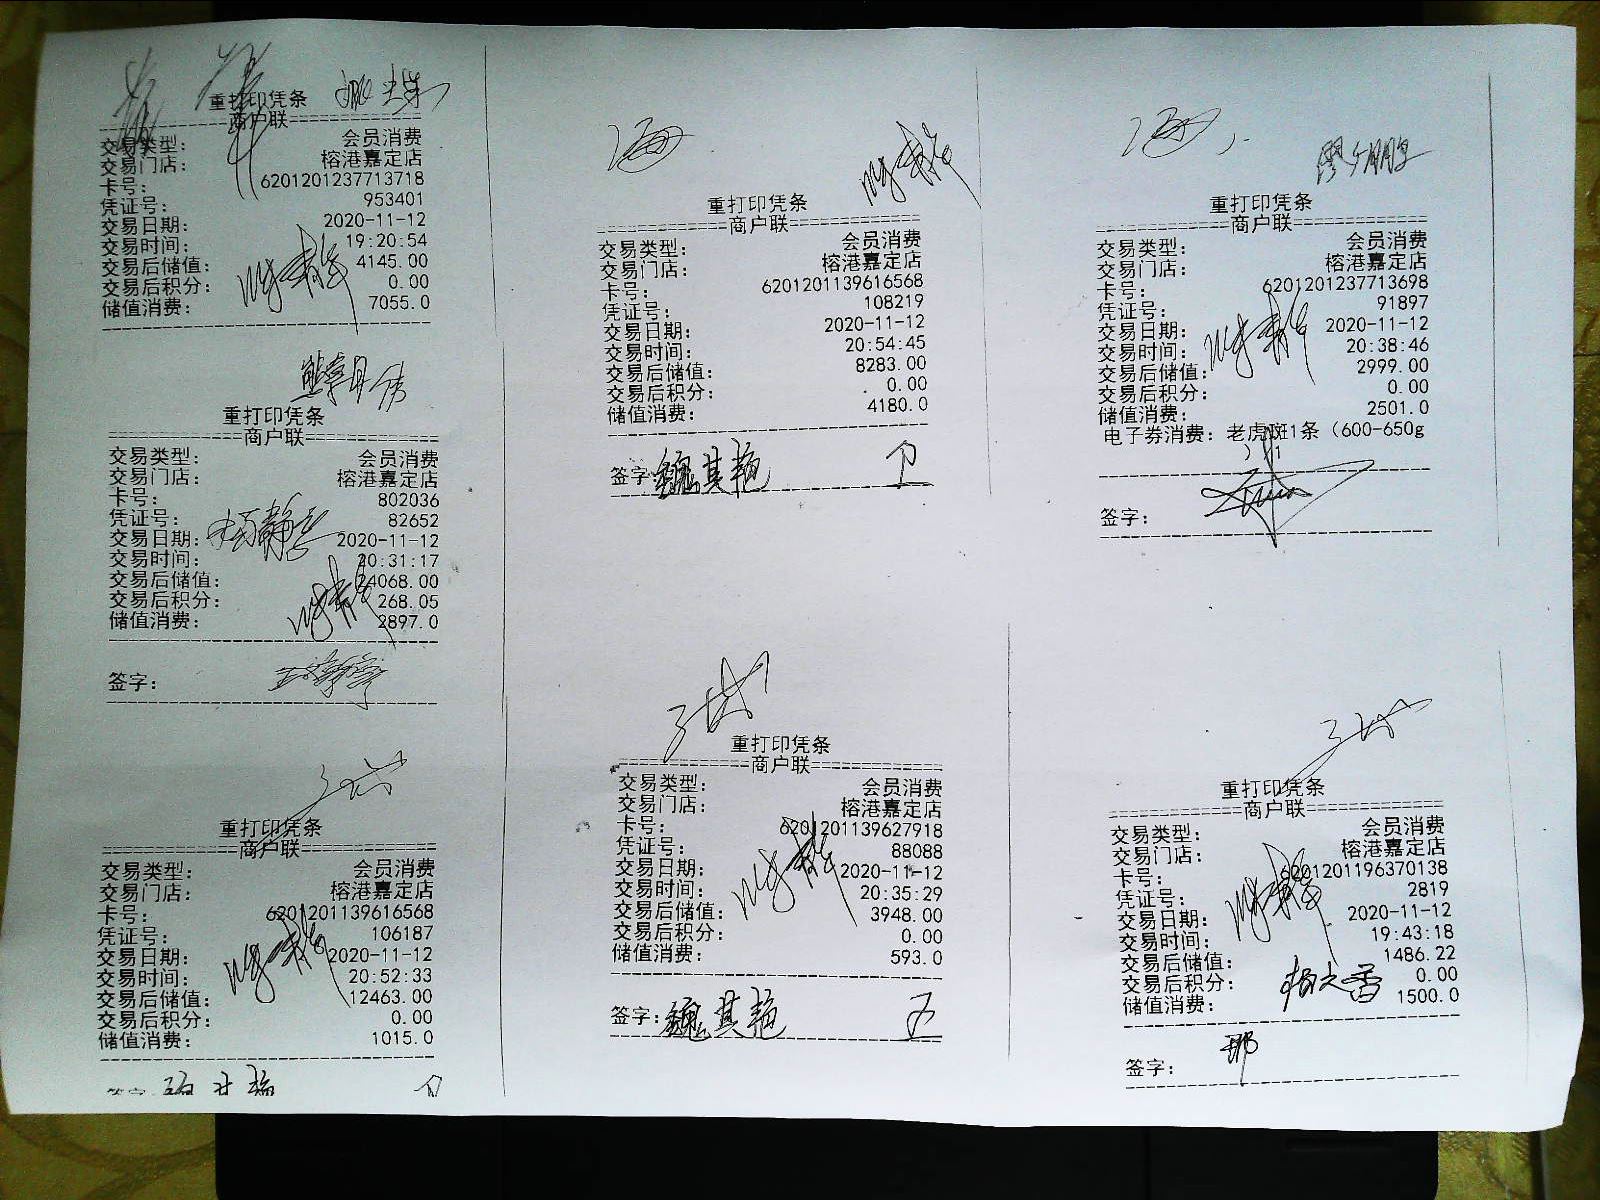 重打印凭条
商户联
交易类型: 会员消费
交易门店: 榕港嘉定店
卡号: 6201201237713718
凭证号: 953401
交易日期: 2020-11-12
交易时间: 19:20:54
交易后储值: 4145.00
交易后积分: 0.00
储值消费: 7055.0
重打印凭条
商户联
交易类型: 会员消费
交易门店: 榕港嘉定店
卡号: 802036
凭证号: 82652
交易日期: 2020-11-12
交易时间: 20:31:17
交易后储值: 24068.00
交易后积分: 268.05
储值消费: 2897.0
签字:
重打印凭条
商户联
交易类型: 会员消费
交易门店: 榕港嘉定店
卡号: 6201201139616568
凭证号: 106187
交易日期: 2020-11-12
交易时间: 20:52:33
交易后储值: 12463.00
交易后积分: 0.00
储值消费: 1015.0
海
重打印凭条
商户联
交易类型: 会员消费
交易门店: 榕港嘉定店
卡号: 6201201139616568
凭证号: 108219
交易日期: 2020-11-12
交易时间: 20:54:45
交易后储值: 8283.00
交易后积分: 0.00
储值消费: 4180.0
签字: 魏其艳
重打印凭条
商户联
交易类型: 会员消费
交易门店: 榕港嘉定店
卡号: 6201201139627918
凭证号: 88088
交易日期: 2020-11-12
交易时间: 20:35:29
交易后储值: 3948.00
交易后积分: 0.00
储值消费: 593.0
签字: 魏其艳
海
重打印凭条
商户联
交易类型: 会员消费
交易门店: 榕港嘉定店
卡号: 6201201237713698
凭证号: 91897
交易日期: 2020-11-12
交易时间: 20:38:46
交易后储值: 2999.00
交易后积分: 0.00
储值消费: 2501.0
电子券消费: 老虎斑1条（600-650g
签字:
重打印凭条
商户联
交易类型: 会员消费
交易门店: 榕港嘉定店
卡号: 6201201196370138
凭证号: 2819
交易日期: 2020-11-12
交易时间: 19:43:18
交易后储值: 1486.22
交易后积分: 0.00
储值消费: 1500.0
签字: